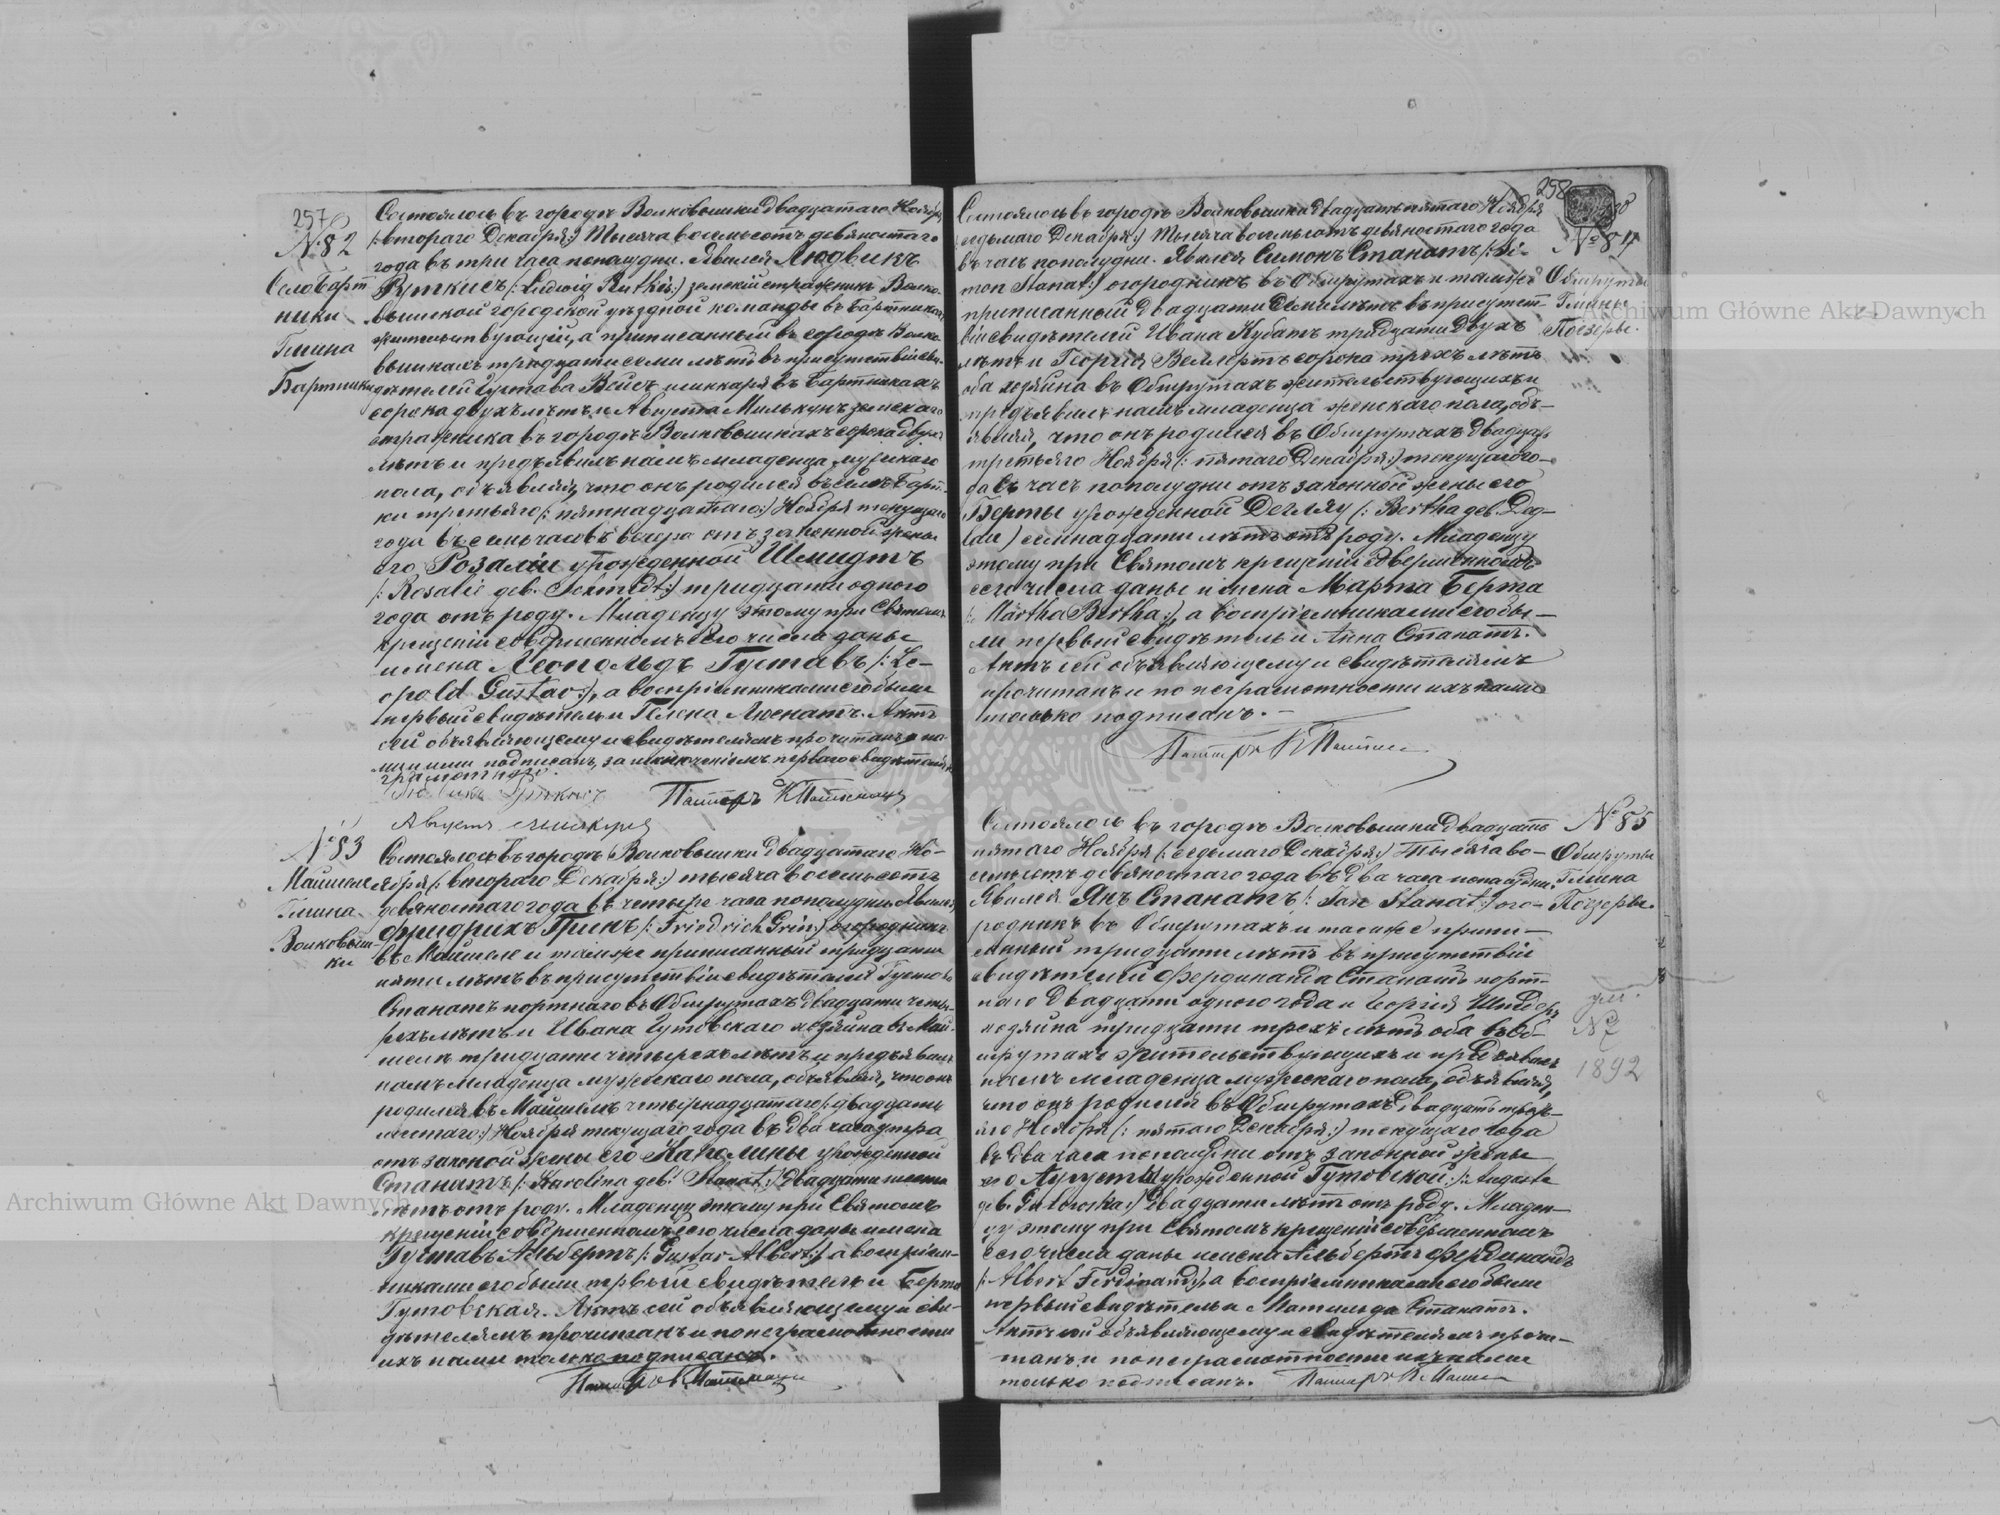 257
№ 82
Село Барт
ники
Гмина
Бартники
Состоялось въ городѣ Волковышки двадцатаго Ноября
/:втораго Декабря:/ Тысяча восемьсотъ девяностаго
года въ три часа пополудни. Явился Людвикъ
Руткисъ /: Ludwig Rutkis:/ земскій стражникъ Волко-
вышской городской уѣздной команды въ Бартникахъ
жительствующій, а приписанный въ городѣ Волко-
вышкахъ тридцати семи лѣтъ въ присутствіи сви-
дѣтелей Густава Вейсъ шинкаря въ Бартникахъ
сорока двухъ лѣтъ и Августа Милькунъ земскаго
стражника въ городѣ Волковышкахъ сорока двухъ
лѣтъ и предъявилъ намъ младенца мужескаго
пола, объявляя, что онъ родился въ селѣ Барт-
ки третьяго /: пятнадцатаго:/ Ноября текущаго
года въ семь часовъ вечера отъ законной жены
его Розаліи урожденной Шмидтъ
/: Rosalie geb. Schmidt:/ тридцати одного
года отъ роду. Младенцу этому при Святомъ
крещеніи совершенномъ сего числа даны
имена Леопольдъ Густавъ /: Le-
opold Gustav:/, а воспріемниками его были
первый свидѣтель и Гелена Люенатъ. Актъ
сей объявляющему и свидѣтелямъ прочитанъ на-
ми и ими подписанъ, за исключеніемъ перваго свидѣтеля
грамотнаго.
Пасторъ К Пашмацъ
Августъ Милькунъ
№ 83
Майшеле
Гмина
Волковыш-
ки
Состоялось въ городѣ Волковышки двадцатаго Но-
ября /: втораго Декабря:/ тысяча восемьсотъ
девяностаго года въ четыре часа пополудни. Явился
Фридрихъ Гринъ /: Friedrich Grin:/ огородникъ
въ Майшеле и тамже приписанный тридцати
пяти лѣтъ въ присутствіи свидѣтелей Густава
Станатъ портнаго въ Обшрутахъ двадцати четы-
рехъ лѣтъ и Ивана Гутовскаго хозяина въ Май-
шеле тридцати четырехъ лѣтъ и предъявилъ
намъ младенца мужескаго пола, объявляя, что онъ
родился въ Майшеле четырнадцатаго /: двадцать
шестаго:/ Ноября текущаго года въ два часа утра
отъ законой жены его Каролины урожденной
Станатъ /: Karolina geb. Stanat:/ двадцати шести
лѣтъ отъ роду. Младенцу этому при Святомъ
крещеніи совершенномъ сего числа даны имена
Густавъ Альбертъ /: Gustav Albert:/ а воспріем-
никами его были первый свидѣтель и Берта
Гутовская. Актъ сей объявляющему и сви-
дѣтелямъ прочитанъ и по неграмотности
ихъ нами только подписанъ.
Пасторъ К. Пашмацъ
258
№ 84
Обшруты
Гмины
Поезеры.
Состоялось въ городѣ Волковышки двадцать пятаго Ноября
/седьмаго Декабря:/ Тысяча восемьсотъ девяностаго года
въ часъ пополудни. Явился Симонъ Станатъ /: Si-
mon Stanat:/ огородникъ въ Обшрутахъ и тамже
приписанный двадцати семи лѣтъ въ присутст-
віи свидѣтелей Ивана Кубатъ тридцати двухъ
лѣтъ и Георгія Веллертъ сорока трехъ лѣтъ
оба хозяина въ Обшрутахъ жительствующихъ и
предъявилъ намъ младенца женскаго пола, объ-
являя, что онъ родился въ Обшрутахъ двадцать
третьяго Ноября /: пятаго Декабря:/ текущаго го-
да въ часъ пополудни отъ законной жены его
Берты урожденной Дегляу /: Bertha geb. Deg-
lau/ семнадцати лѣтъ отъ роду. Младенцу
этому при Святомъ крещеніи совершенномъ
сего числа даны имена Марта Берта
/: Martha Bertha:/, а воспріемниками его бы-
ли первый свидѣтель и Анна Станатъ.
Актъ сей объявляющему и свидѣтелямъ
прочитанъ и по неграмотности ихъ нами
только подписанъ. —
Пасторъ К Пашмацъ
№ 85
Обшруты
Гмина
Поезеры.
Состоялось въ городѣ Волковышки двадцать
пятаго Ноября /: седьмаго Декабря:/ Тысяча во-
семьсотъ девяностаго года въ два часа пополудни.
Явился Янъ Станатъ /: Jan Stanat:/ ого-
родникъ въ Обшрутахъ и тамже припи-
санный тридцати лѣтъ въ присутствіи
свидѣтелей Фердинанда Станатъ порт-
наго двадцати одного года и Георгія Шнейдеръ
хозяина тридцати трехъ лѣтъ оба въ Об-
шрутахъ жительствующихъ и предъявилъ
намъ младенца мужескаго пола, объявляя,
что онъ родился въ Обшрутахъ двадцать треть-
яго Ноября /: пятаго Декабря:/ текущаго года
въ два часа пополудни отъ законной жены
его Августы урожденной Гутовской /: Auguste
geb. Gutowska:/ двадцати лѣтъ отъ роду. Младен-
цу этому при Святомъ крещеніи совершенномъ
сего числа даны имена Альбертъ Фердинандъ
/: Albert Ferdinand:/ а воспріемниками его были
первый свидѣтель и Матильда Станатъ.
Актъ сей объявляющему и свидѣтелямъ прочи-
танъ и по неграмотности ихъ нами
только подписанъ. Пасторъ К. Пашмацъ
ум.
№ 7
1892
Archiwum Główne Akt Dawnych
Archiwum Główne Akt Dawnych